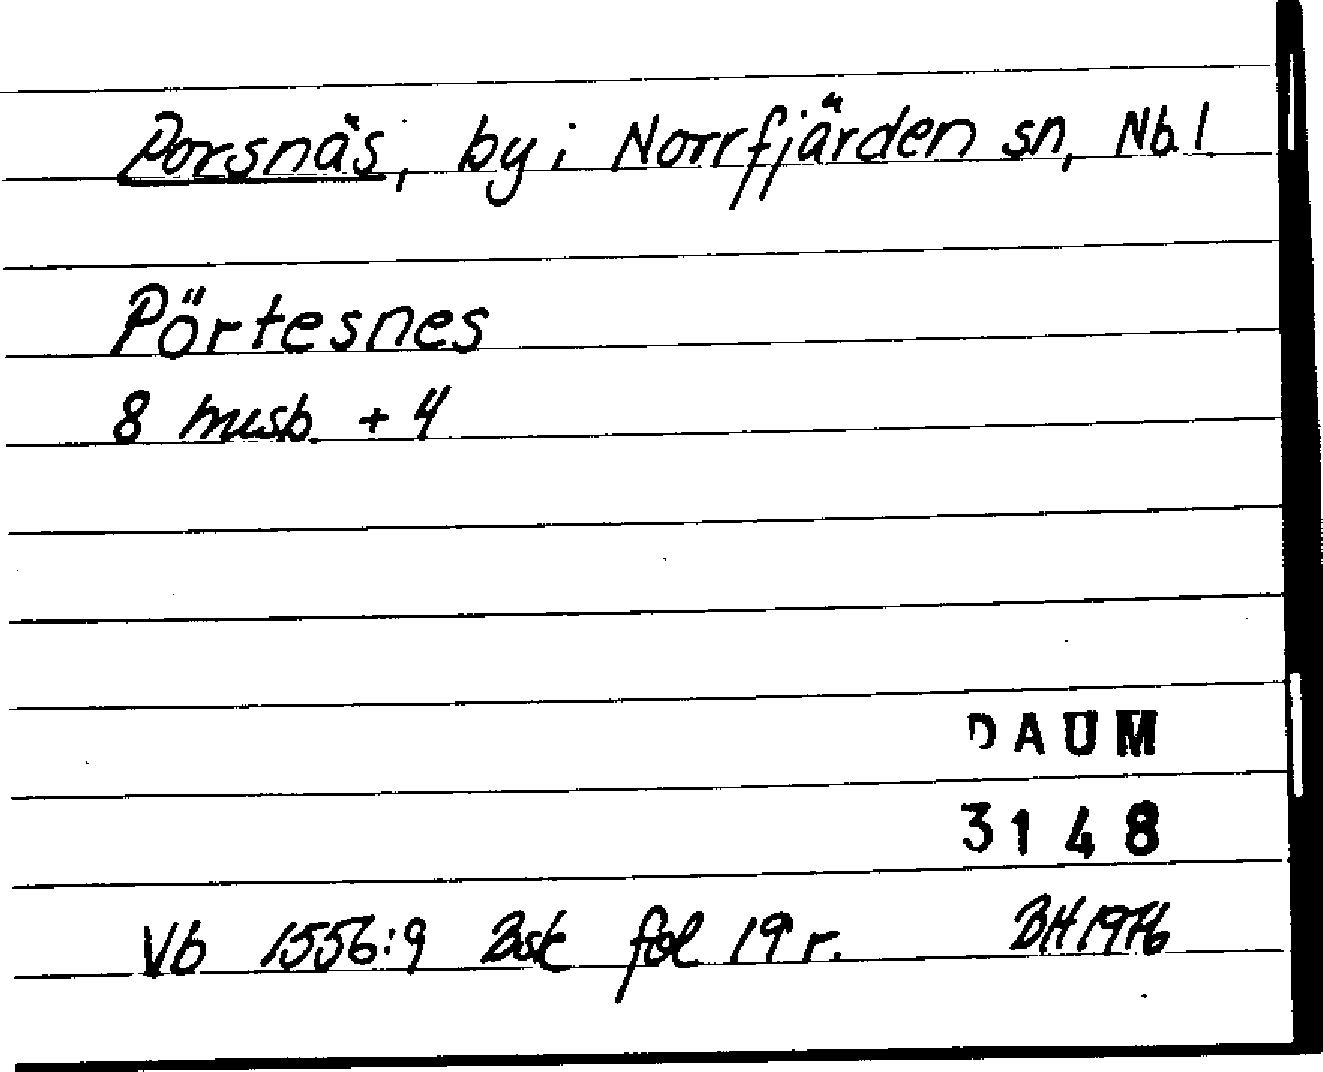 Porsnäs, by i Norrfjärden sn, Nb.l.
Pörtesnes
8 husb. + 4
DAUM
3148
Vb 1556:9 Bsk fol 19 r. BH 1976